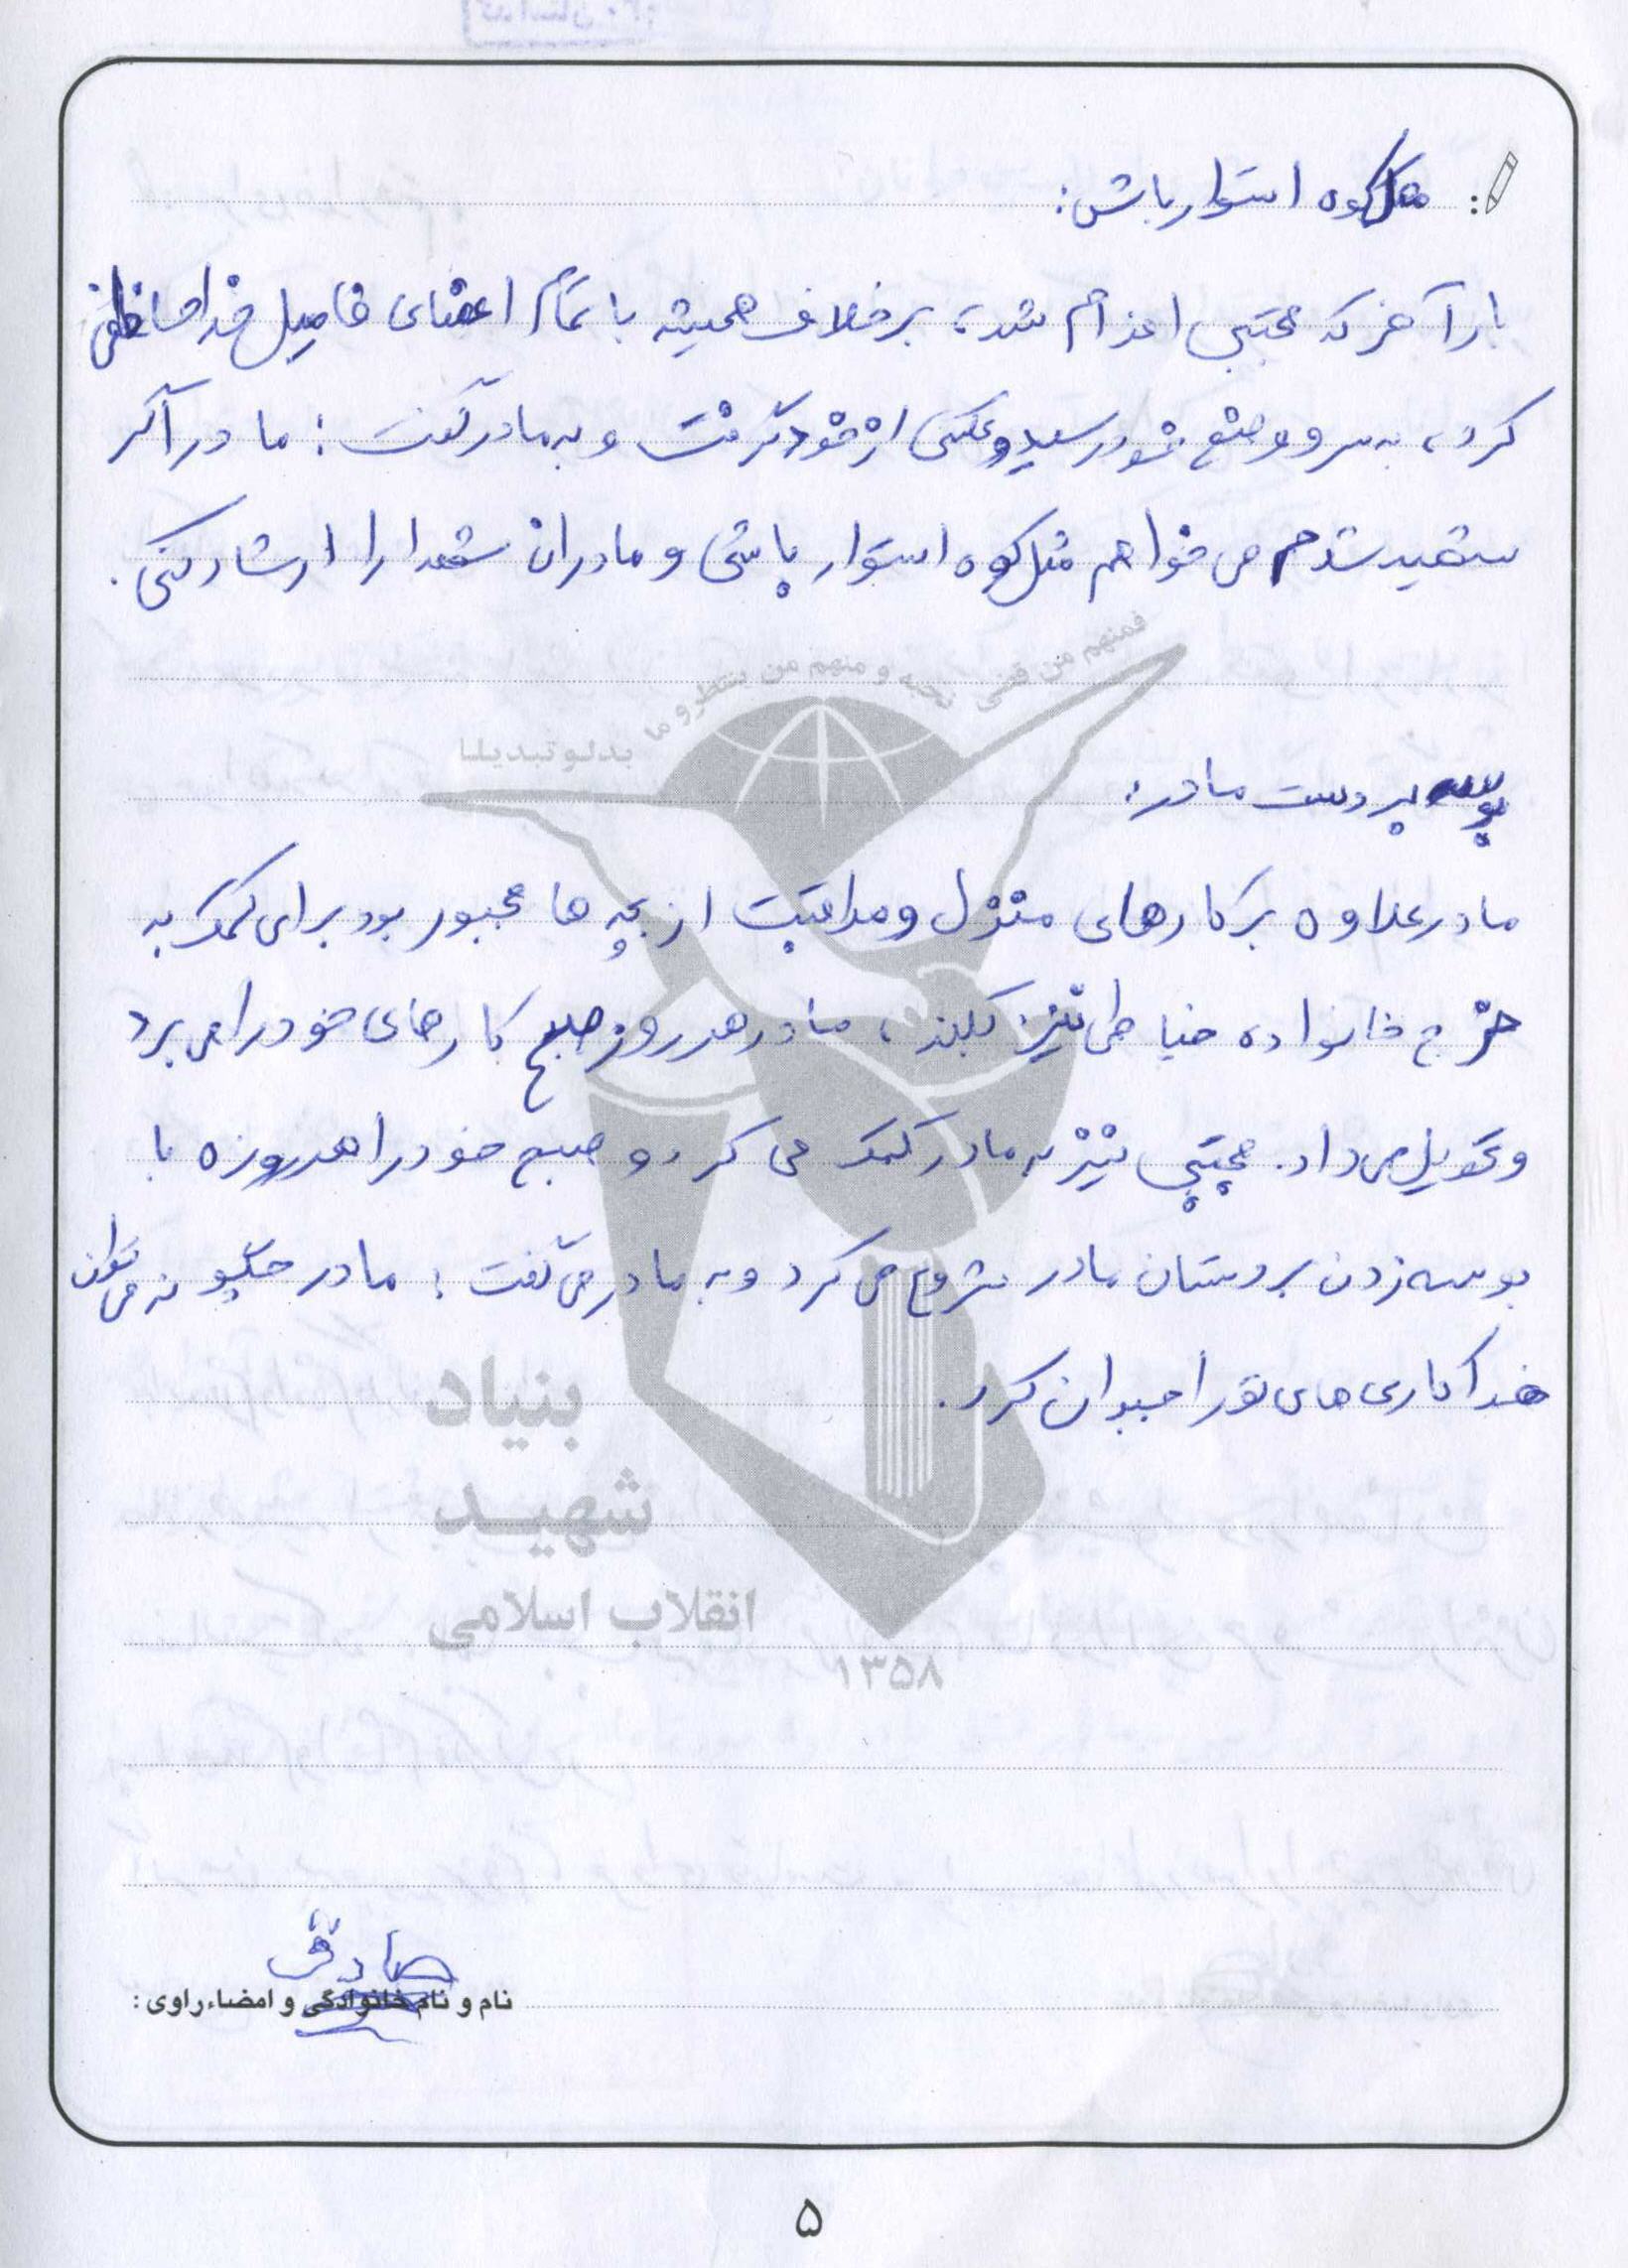 مثل کوه استوار باش:
بار آخر که مجتبی اعزام شد، برخلاف همیشه با تمام اعضای فامیل خداحافظی
کرد، به سر و وضع خود رسید و عکسی از خود گرفت و به مادر گفت: مادر اگر
شهید شدم می خواهم مثل کوه استوار باشی و مادران شهدا را ارشاد کنی.
فمنهم من قضی نحبه و منهم من ینتظر و ما
بدلو تبدیلا
بوسه بر دست مادر:
مادر علاوه بر کارهای منزل و مراقبت از بچه ها مجبور بود برای کمک به
خرج خانواده خیاطی نیز بکند، مادر هر روز صبح کارهای خود را می برد
و تحویل می داد. مجتبی نیز به مادر کمک می کرد و صبح خود را هر روزه با
بوسه زدن بر دستان مادر شروع می کرد و به مادر می گفت: مادر چگونه می توان
فداکاری های تو را جبران کرد.
بنیاد
شهید
انقلاب اسلامی
۱۳۵۸
صادقی
نام و نام خانوادگی و امضاء راوی:
۵